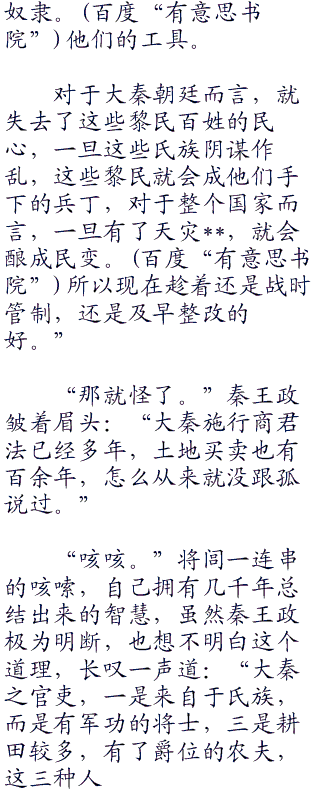 奴隶。(百度“有意思书
院”)他们的工具。
对于大秦朝廷而言，就
失去了这些黎民百姓的民
心，一旦这些氏族阴谋作
乱，这些黎民就会成他们手
下的兵丁，对于整个国家而
言，一旦有了天灾**，就会
酿成民变。(百度“有意思书
院”)所以现在趁着还是战时
管制，还是及早整改的
好。”
“那就怪了。”秦王政
皱着眉头：“大秦施行商君
法已经多年，土地买卖也有
百余年，怎么从来就没跟孤
说过。”
“咳咳。”将闾一连串
的咳嗦，自己拥有几千年总
结出来的智慧，虽然秦王政
极为明断，也想不明白这个
道理，长叹一声道：“大秦
之官吏，一是来自于氏族，
而是有军功的将士，三是耕
田较多，有了爵位的农夫，
这三种人